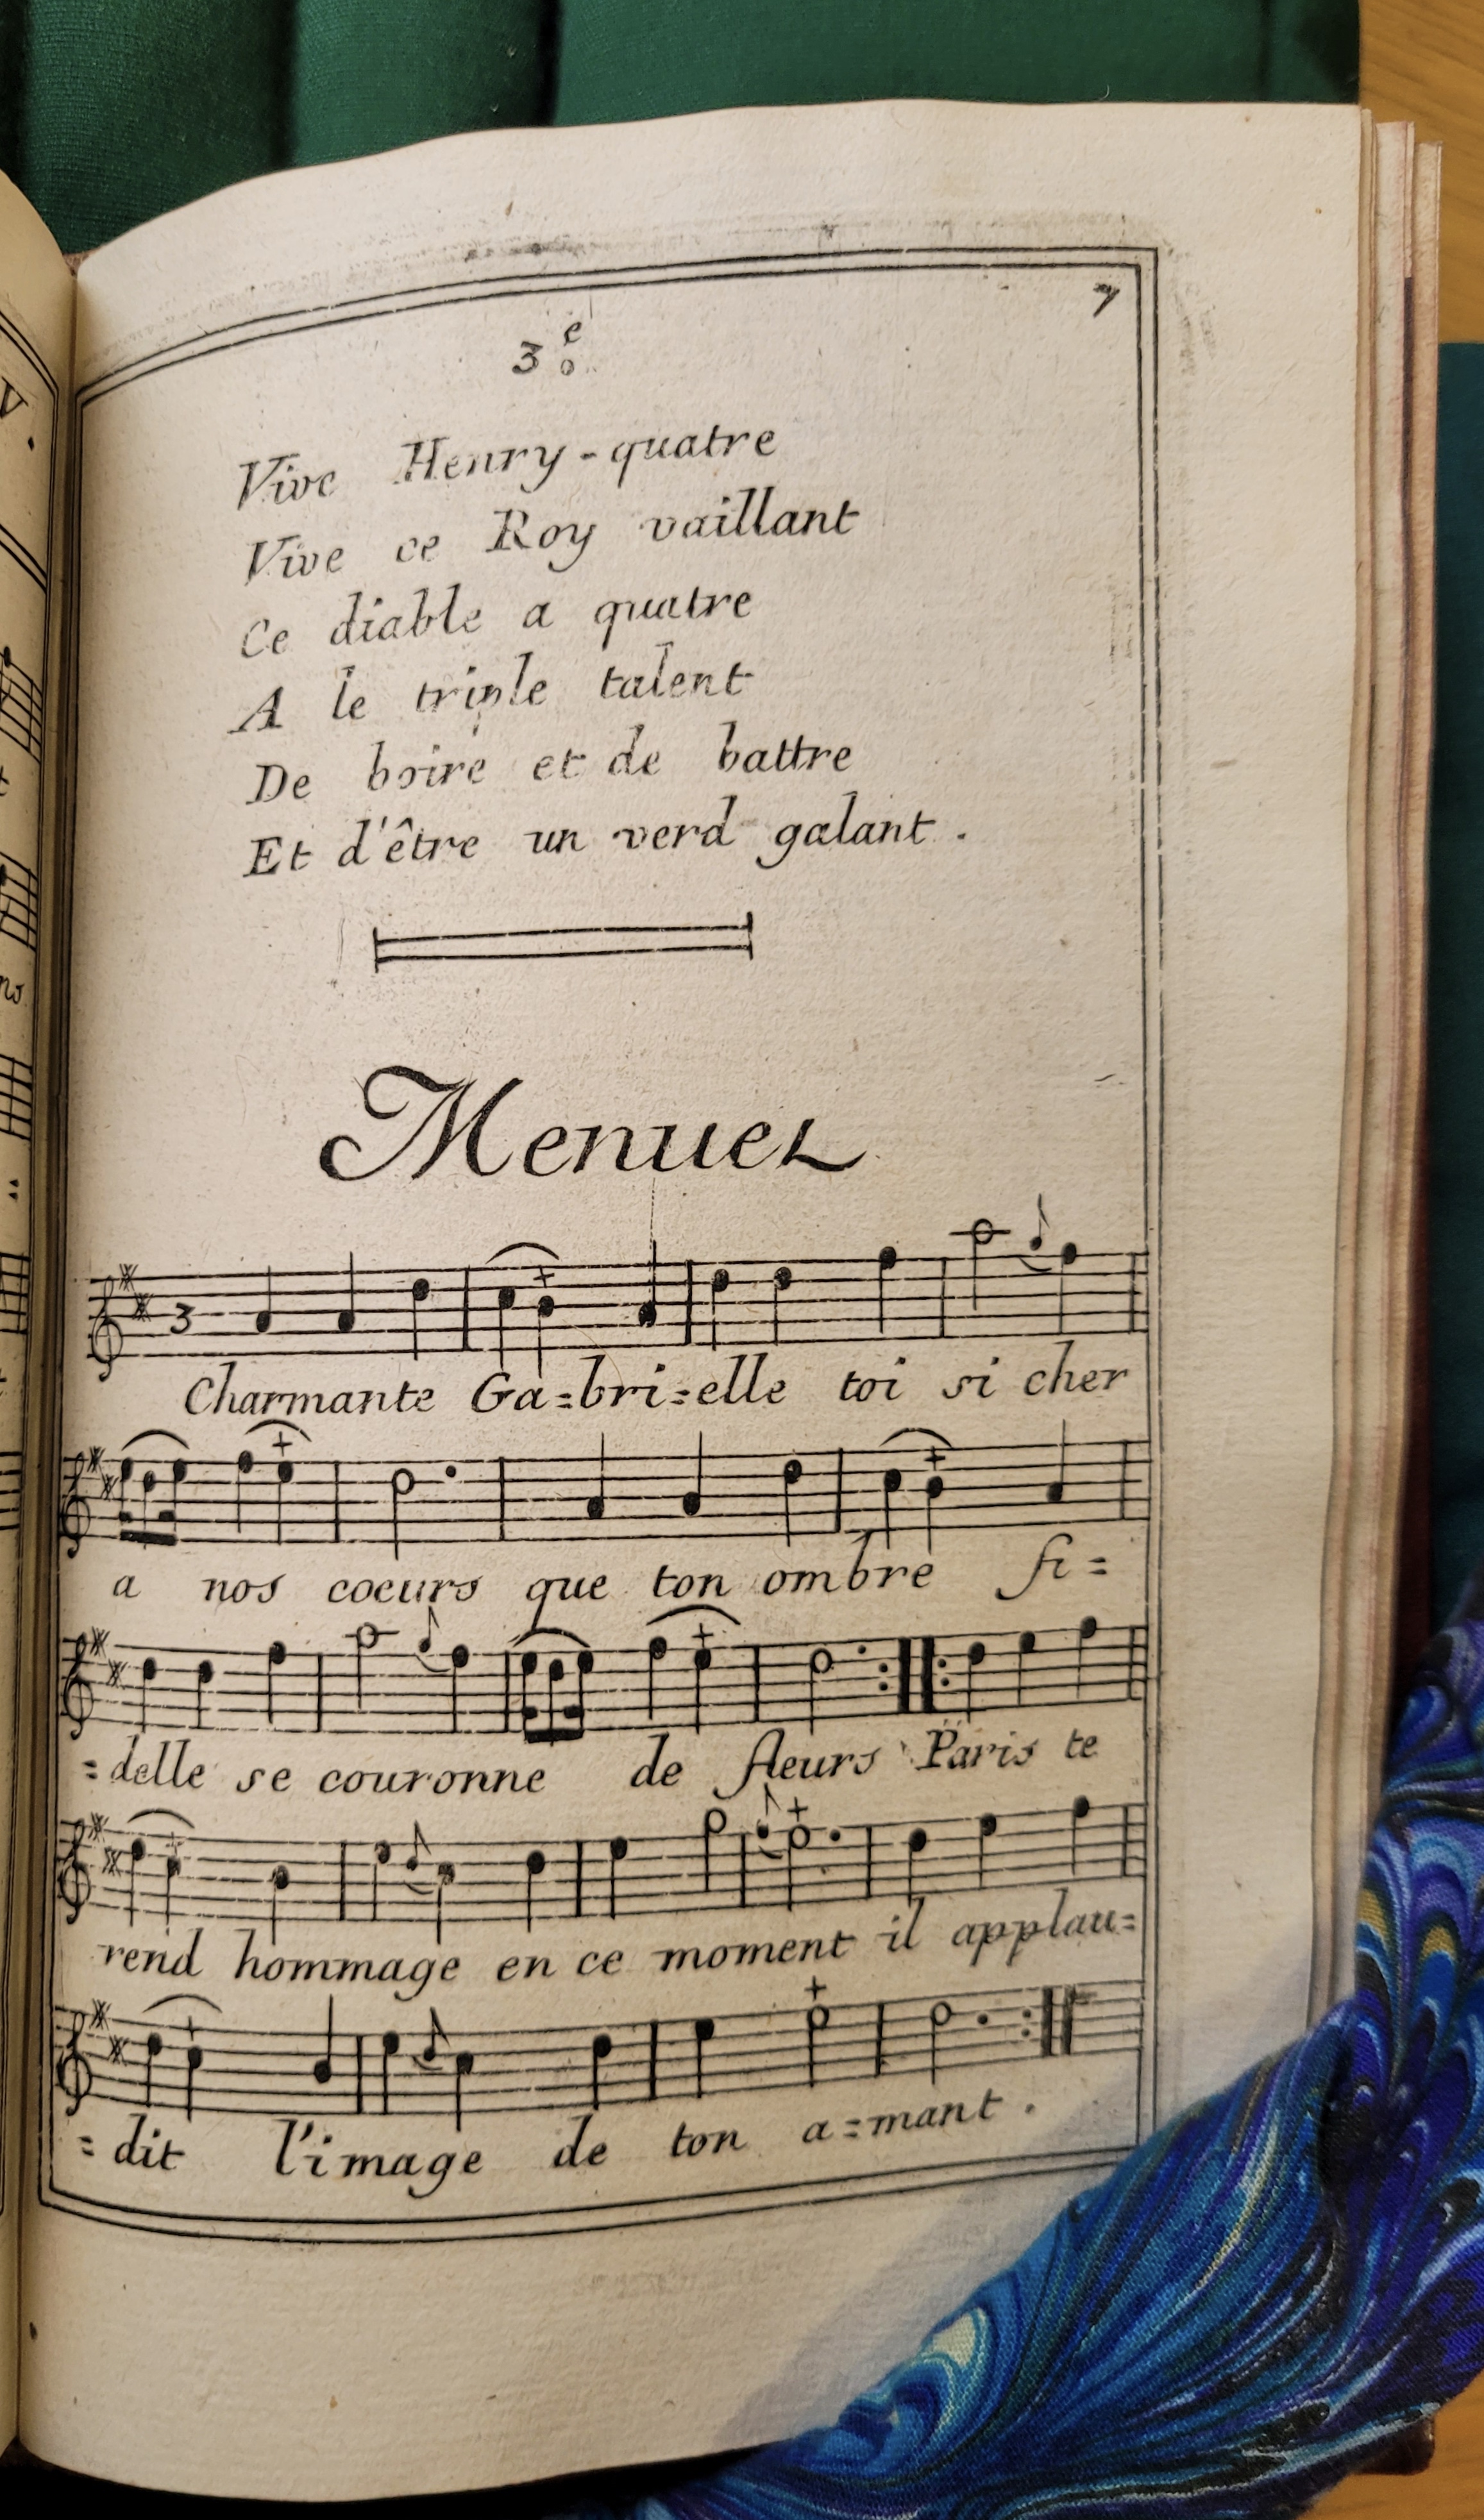 7
3e
Vive Henry-quatre
Vive ce Roy vaillant
Ce diable a quatre
A le triple talent
De boire et de battre
Et d'être un verd galant.
Menuet
3
Charmante Ga=bri=elle toi si cher
a nos coeurs que ton ombre fi=
=delle se couronne de fleurs Paris te
rend hommage en ce moment il applau=
=dit l'image de ton a=mant.